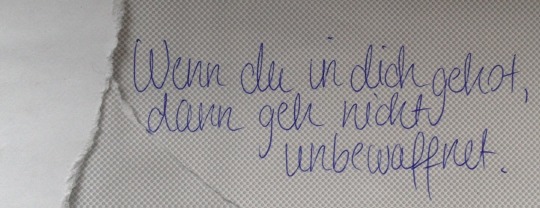 Wenn du in dich gehst,
dann geh nicht
unbewaffnet.